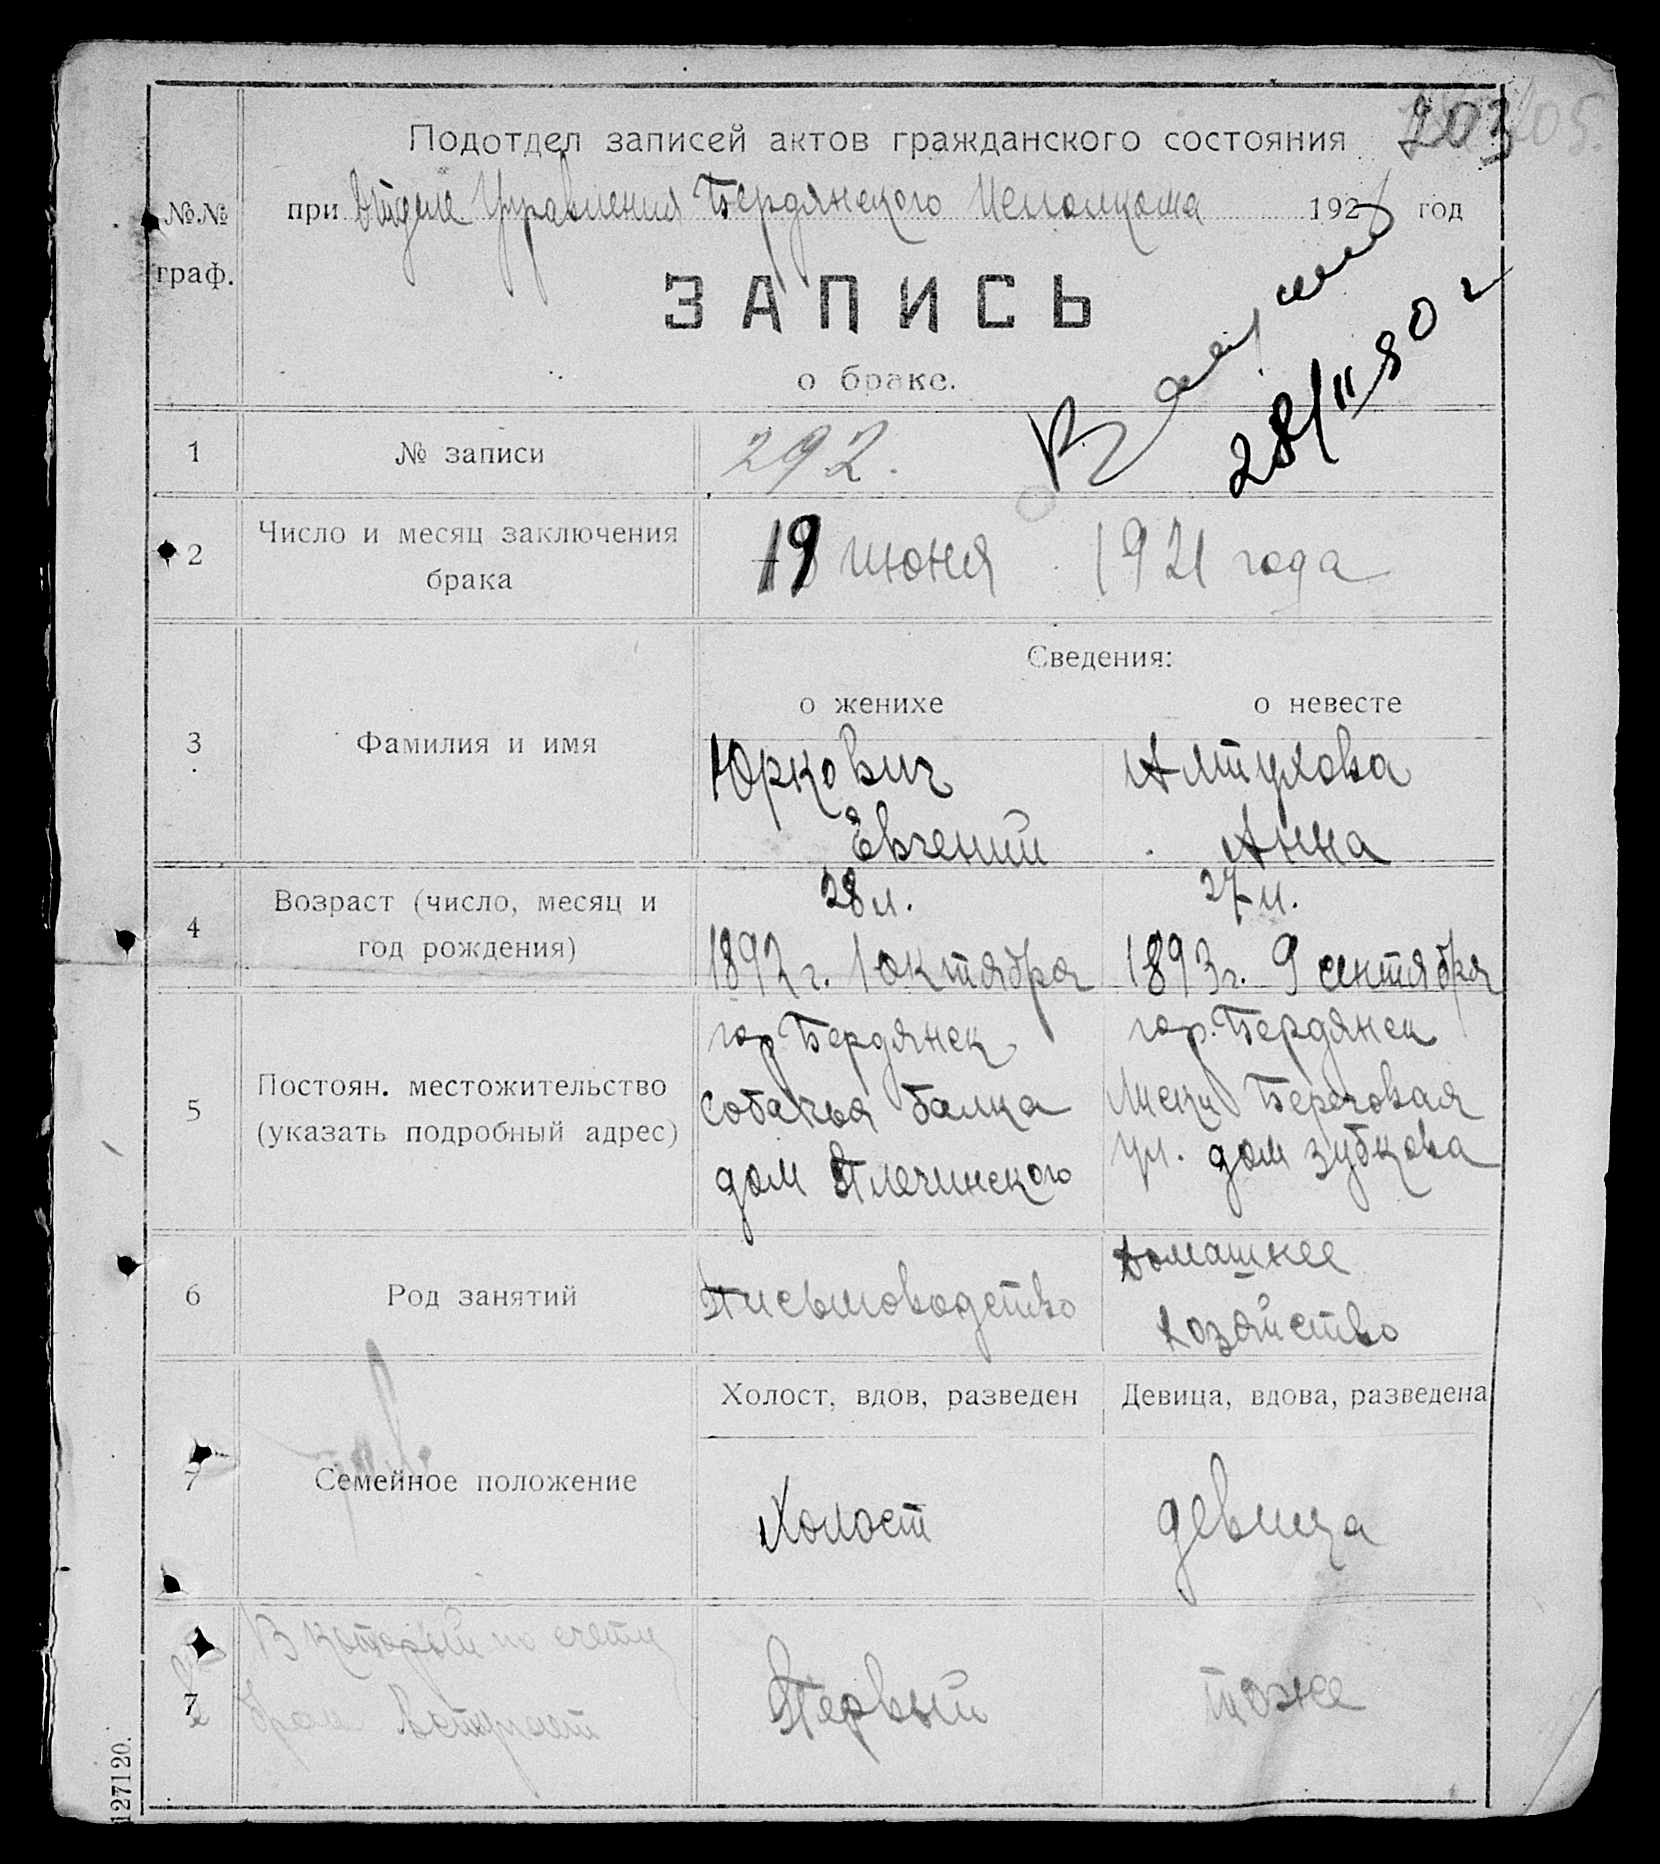 203
Подотдел записей актов гражданского состояния
при Отделе Управления Бердянского Исполкома 1921 год
№№
граф.
ЗАПИСЬ
о браке.
28/II 80 г
1 № записи 292.
2 Число и месяц заключения
брака
19 июня 1921 года
Сведения:
о женихе о невесте
3 Фамилия и имя
Юркович Алтухова
Евгений Анна
4 Возраст (число, месяц и
год рождения)
28 л. 27 л.
1892 г. 1 октября 1893 г. 9 сентября
5 Постоян. местожительство
(указать подробный адрес)
гор. Бердянск гор. Бердянск
Собачья балка Лиски Береговая
дом Плечинского ул. дом Зубкова
6 Род занятий
Письмоводство Домашнее
хозяйство
Холост, вдов, разведен Девица, вдова, разведена
7 Семейное положение
Холост девица
7 В который по счету
брак вступает
Первый тоже
127120.